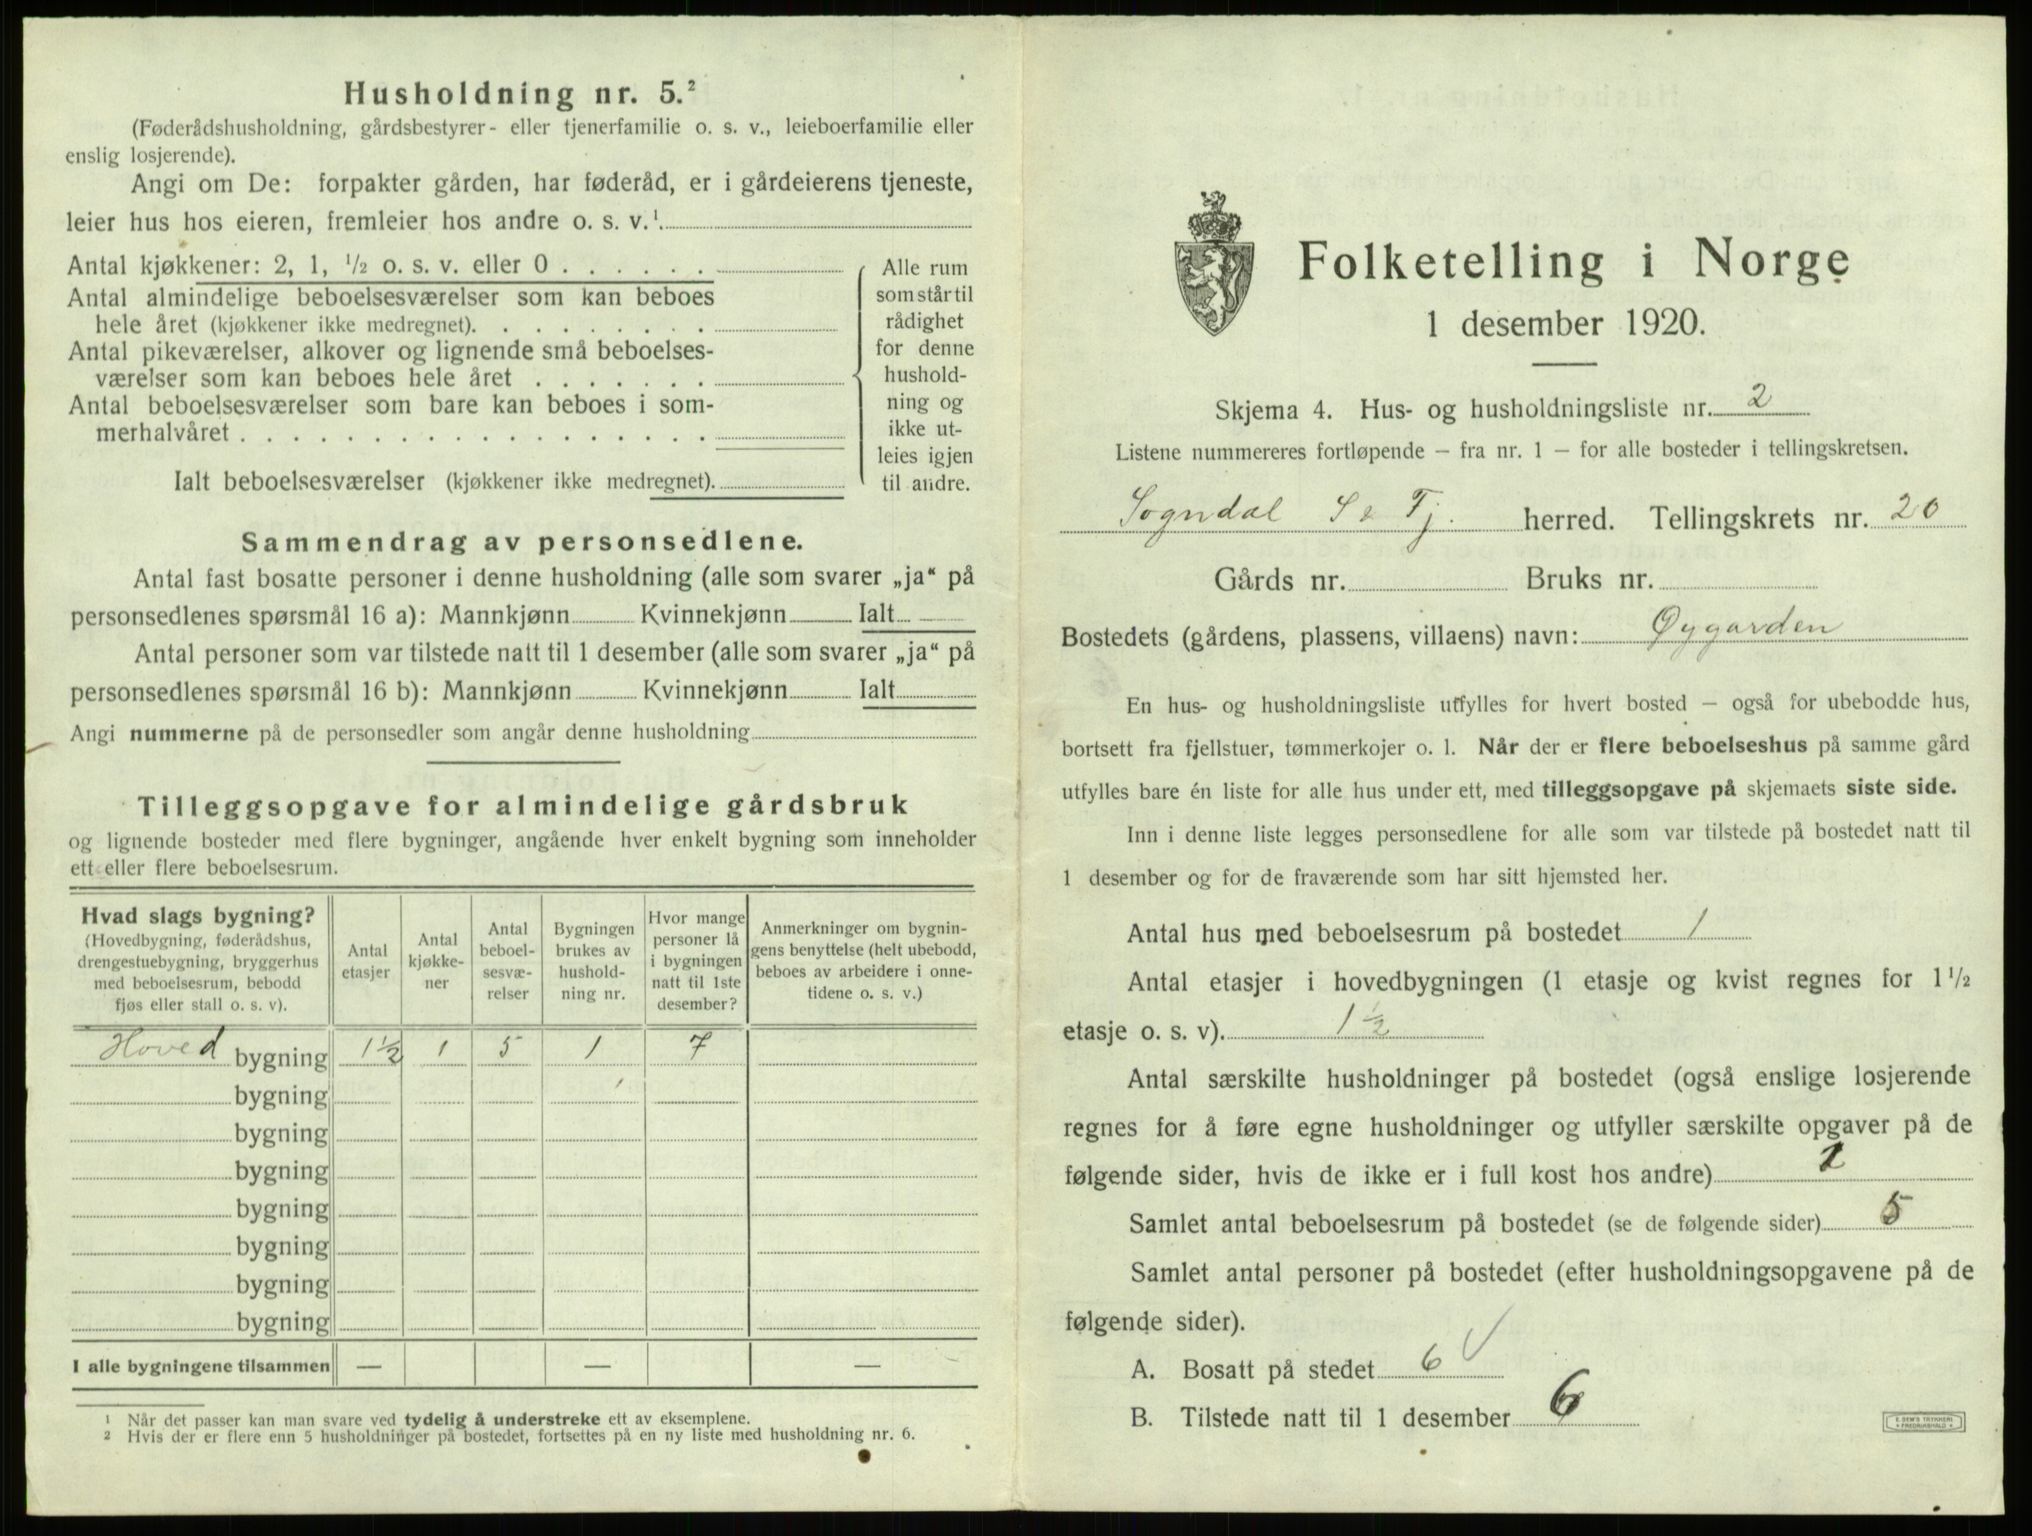 Husholdning nr. 5.²
(Føderådshusholdning, gårdsbestyrer- eller tjenerfamilie o. s. v., leieboerfamilie eller
enslig losjerende).
Angi om De: forpakter gården, har føderåd, er i gårdeierens tjeneste,
leier hus hos eieren, fremleier hos andre o. s. v.¹
Antal kjøkkener: 2, 1, ½ o. s. v. eller 0 . . . . . .
Antal almindelige beboelsesværelser som kan beboes
hele året (kjøkkener ikke medregnet). . . . . . . . .
Antal pikeværelser, alkover og lignende små beboelses-
værelser som kan beboes hele året . . . . . . .
Antal beboelsesværelser som bare kan beboes i som-
merhalvåret . . . . . . . . . . . . . . . . . .
Ialt beboelsesværelser (kjøkkener ikke medregnet).
Alle rum
som står til
rådighet
for denne
hushold-
ning og
ikke ut-
leies igjen
til andre.
Sammendrag av personsedlene.
Antal fast bosatte personer i denne husholdning (alle som svarer „ja“ på
personsedlenes spørsmål 16 a): Mannkjønn Kvinnekjønn Ialt
Antal personer som var tilstede natt til 1 desember (alle som svarer „ja“ på
personsedlenes spørsmål 16 b): Mannkjønn Kvinnekjønn Ialt
Angi nummerne på de personsedler som angår denne husholdning
Tilleggsopgave for almindelige gårdsbruk
og lignende bosteder med flere bygninger, angående hver enkelt bygning som inneholder
ett eller flere beboelsesrum.
Hvad slags bygning?
(Hovedbygning, føderådshus,
drengestuebygning, bryggerhus
med beboelsesrum, bebodd
fjøs eller stall o. s. v).
Antal
etasjer
Antal
kjøkke-
ner
Antal
beboel-
sesvæ-
relser
Bygningen
brukes av
hushold-
ning nr.
Hvor mange
personer lå
i bygningen
natt til 1ste
desember?
Anmerkninger om bygnin-
gens benyttelse (helt ubebodd,
beboes av arbeidere i onne-
tidene o. s. v.)
Hoved bygning 1½ 1 5 1 7
bygning
bygning
bygning
bygning
bygning
bygning
bygning
I alle bygningene tilsammen — — —
¹ Når det passer kan man svare ved tydelig å understreke ett av eksemplene.
² Hvis der er flere enn 5 husholdninger på bostedet, fortsettes på en ny liste med husholdning nr. 6.
Folketelling i Norge
1 desember 1920.
Skjema 4. Hus- og husholdningsliste nr. 2
Listene nummereres fortløpende – fra nr. 1 – for alle bosteder i tellingskretsen.
Sogndal S & Fj. herred. Tellingskrets nr. 20
Gårds nr. Bruks nr.
Bostedets (gårdens, plassens, villaens) navn: Øygarden
En hus- og husholdningsliste utfylles for hvert bosted – også for ubebodde hus,
bortsett fra fjellstuer, tømmerkojer o. l. Når der er flere beboelseshus på samme gård
utfylles bare én liste for alle hus under ett, med tilleggsopgave på skjemaets siste side.
Inn i denne liste legges personsedlene for alle som var tilstede på bostedet natt til
1 desember og for de fraværende som har sitt hjemsted her.
Antal hus med beboelsesrum på bostedet 1
Antal etasjer i hovedbygningen (1 etasje og kvist regnes for 1½
etasje o. s. v). 1½
Antal særskilte husholdninger på bostedet (også enslige losjerende
regnes for å føre egne husholdninger og utfyller særskilte opgaver på de
følgende sider, hvis de ikke er i full kost hos andre) 1
Samlet antal beboelsesrum på bostedet (se de følgende sider) 5
Samlet antal personer på bostedet (efter husholdningsopgavene på de
følgende sider).
A. Bosatt på stedet 6 √
B. Tilstede natt til 1 desember 6
E. SEM'S TRYKKERI
• FREDRIKSHALD •